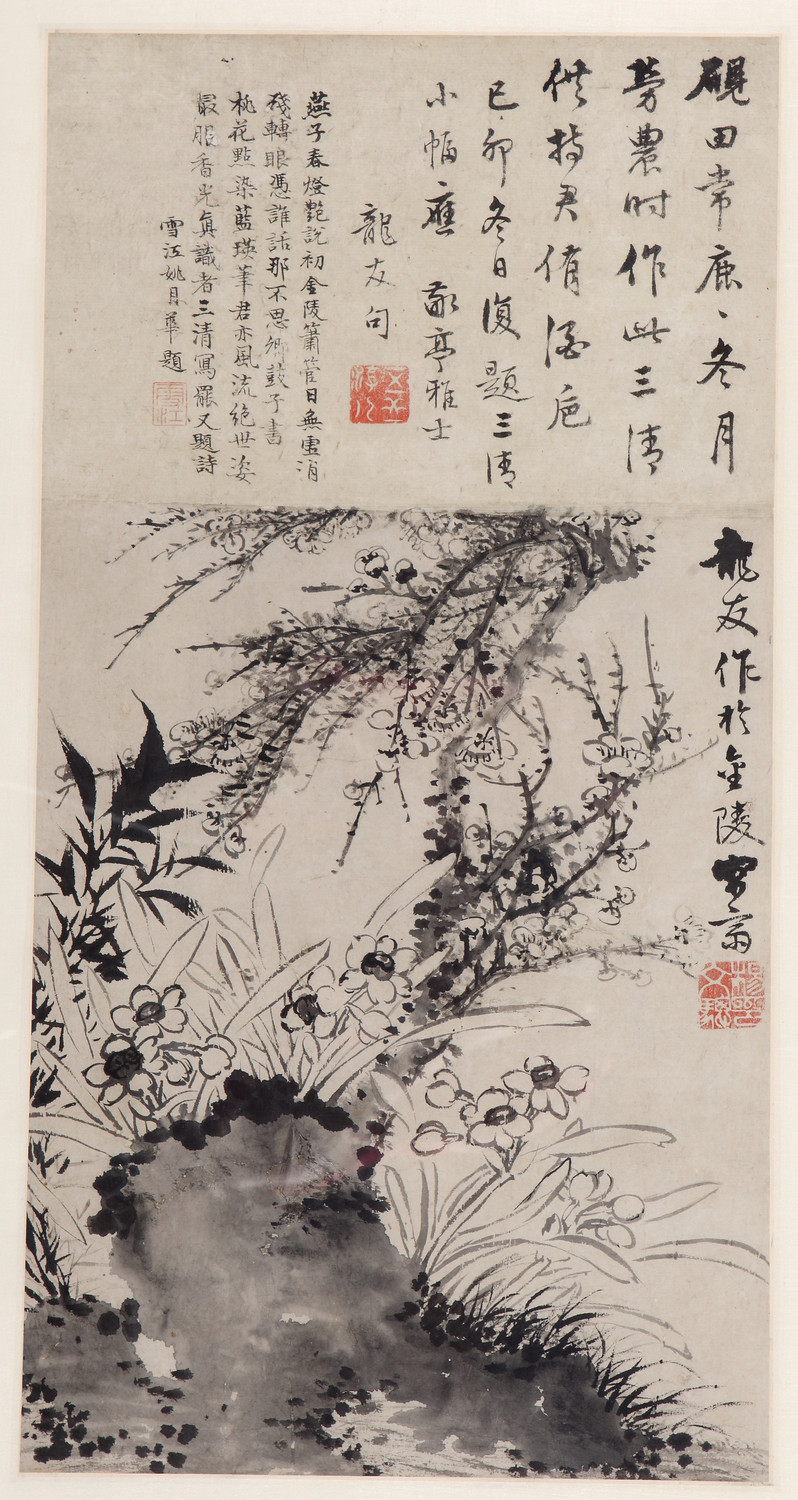 硯田常鹿、冬月
勞農时作此三清
供持君侑酒卮
己卯冬日復題三清
小幅應 敬亭雅士
龍友句
燕子春燈艷說初金陵簫管日無虛消
殘轉眼憑誰話那不思卿鼓子書
桃花點染藍瑛筆君亦風流絕世姿
最服香光真識者三清寫罷又題詩
雪江姚月華題
雪江
龍友作於金陵
楊文驄印